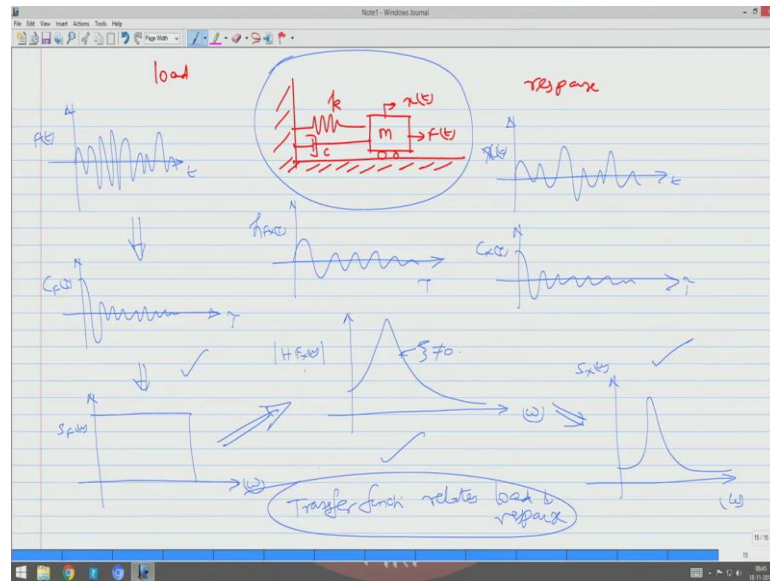 Note1 - Windows Journal
File Edit View Insert Actions Tools Help
Page Width
load
response
k
x(t)
m
F(t)
c
F(t)
t
x(t)
t
h_Fx(τ)
τ
C_F(τ)
τ
C_x(τ)
τ
|H_Fx(ω)|
ξ≠0.
(ω)
S_F(ω)
(ω)
S_x(ω)
(ω)
Transfer funcn relates load to
response
15/15
15
06:45